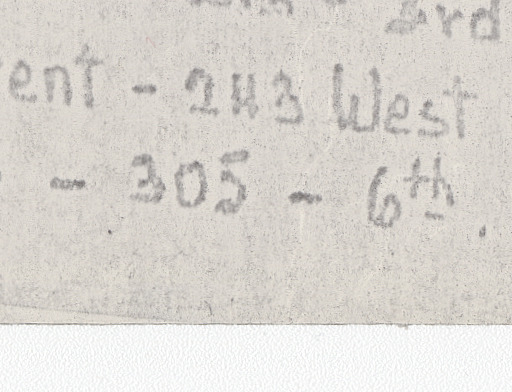 3rd
ent - 243 West
- 305 - 6th.